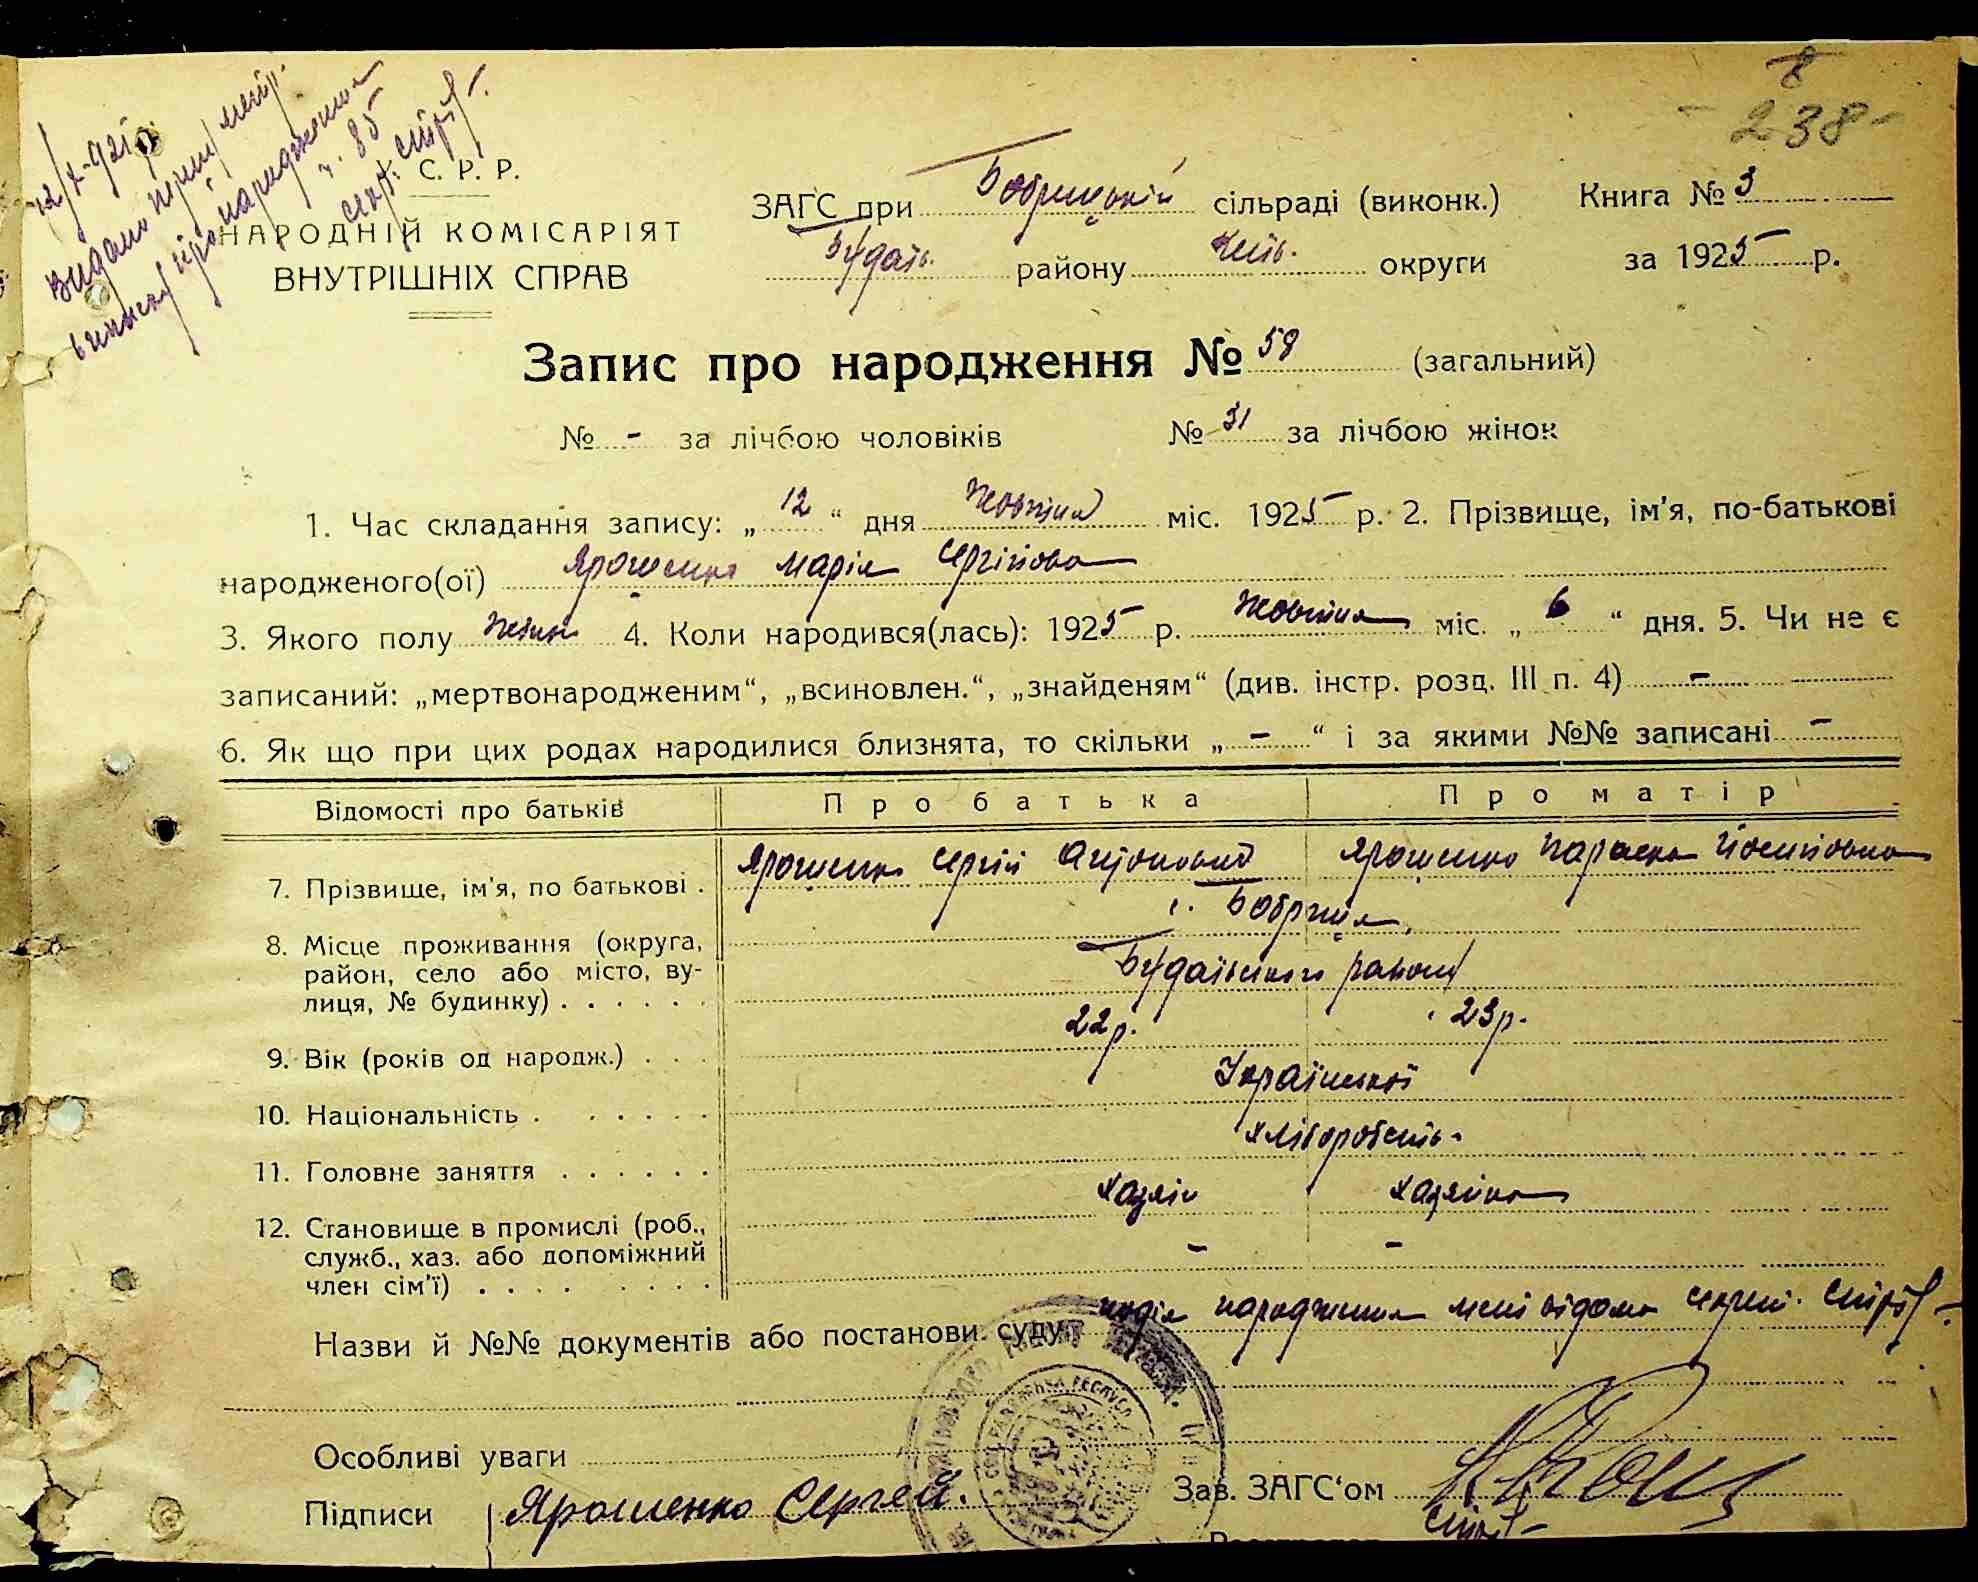 8
- 238 -
12/X-925
Видано
виписку про народження
ч. 85
С. Р. Р.
НАРОДНІЙ КОМІСАРІЯТ
ВНУТРІШНІХ СПРАВ
ЗАГС при Бобрицькій сільраді (виконк.) Книга № 3
Будаїв. району Київ. округи за 1925 р.
Запис про народження № 58 (загальний)
№ - за лічбою чоловіків № 31 за лічбою жінок
1. Час складання запису: „ 12 “ дня Жовтня міс. 1925 р. 2. Прізвище, ім'я, по-батькові
народженого(ої) Ярошенко Марія Сергіївна
3. Якого полу жін. 4. Коли народився(лась): 1925 р. Жовтня міс. „ 6 “ дня. 5. Чи не є
записаний: „мертвонародженим“, „всиновлен.“, „знайденям“ (див. інстр. розд. III п. 4) -
6. Як що при цих родах народилися близнята, то скільки „ - “ і за якими №№ записані -
Відомості про батьків Про батька Про матір
7. Прізвище, ім'я, по батькові . Ярошенко Сергій Антонович Ярошенко Параска Йосипівна
8. Місце проживання (округа, с. Бобриця,
район, село або місто, ву-
лиця, № будинку) . . . . . . Будаївського району
9. Вік (років од народж.) . . . 22 р. 23 р.
10. Національність . . . . . . Української
11. Головне заняття . . . . . . хліборобств.
12. Становище в промислі (роб., Хазяїн Хазяйка
служб., хаз. або допоміжний - -
член сім'ї) . . . . . . . .
Назви й №№ документів або постанови суду подія народження мені відома секрет.
Особливі уваги
Підписи Ярошенко Сергей. Зав. ЗАГС‘ом